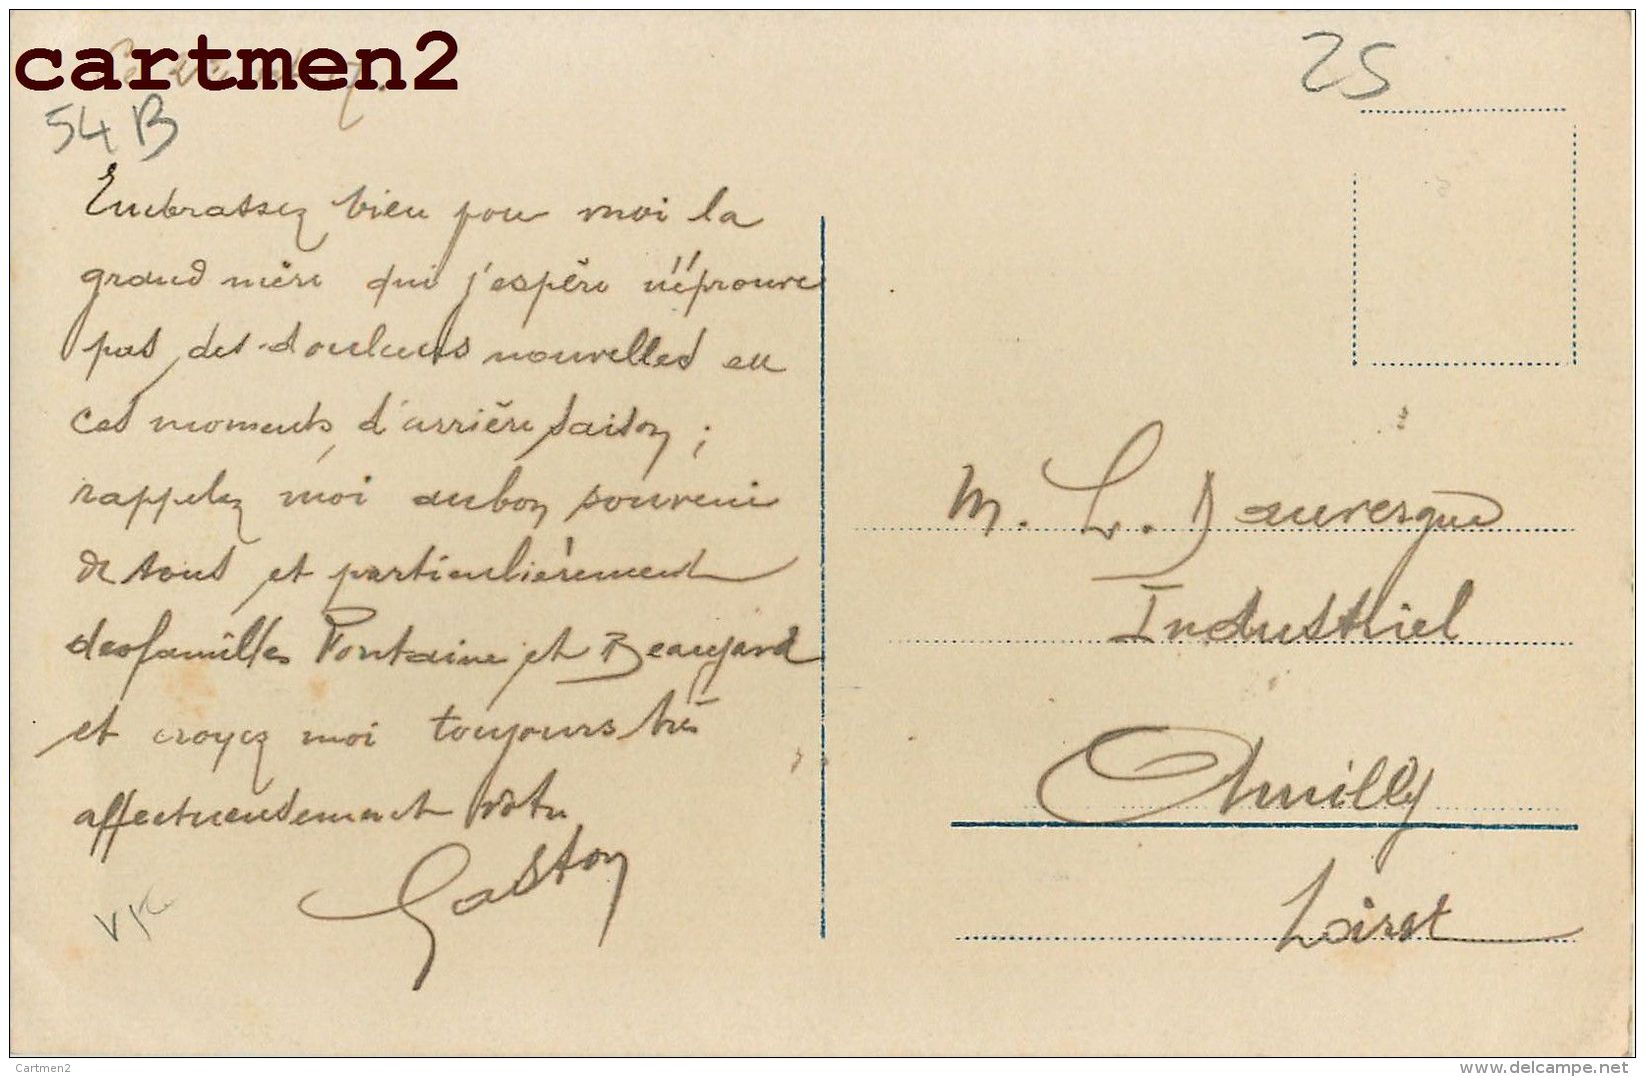 cartmen2
54 B
25
Embrassez bien pour moi la
grand mère qui j'espère n'éprouve
pas des douleurs nouvelles en
ces moments d'arrière saison ;
rappelez moi au bon souvenir
de tous et particulièrement
des familles Fontaine et Beaujard
et croyez moi toujours très
affectueusement votre
Gaston
M. L. Dauvergne
Industriel
Amilly
Loiret
Cartmen2
delcampe.net